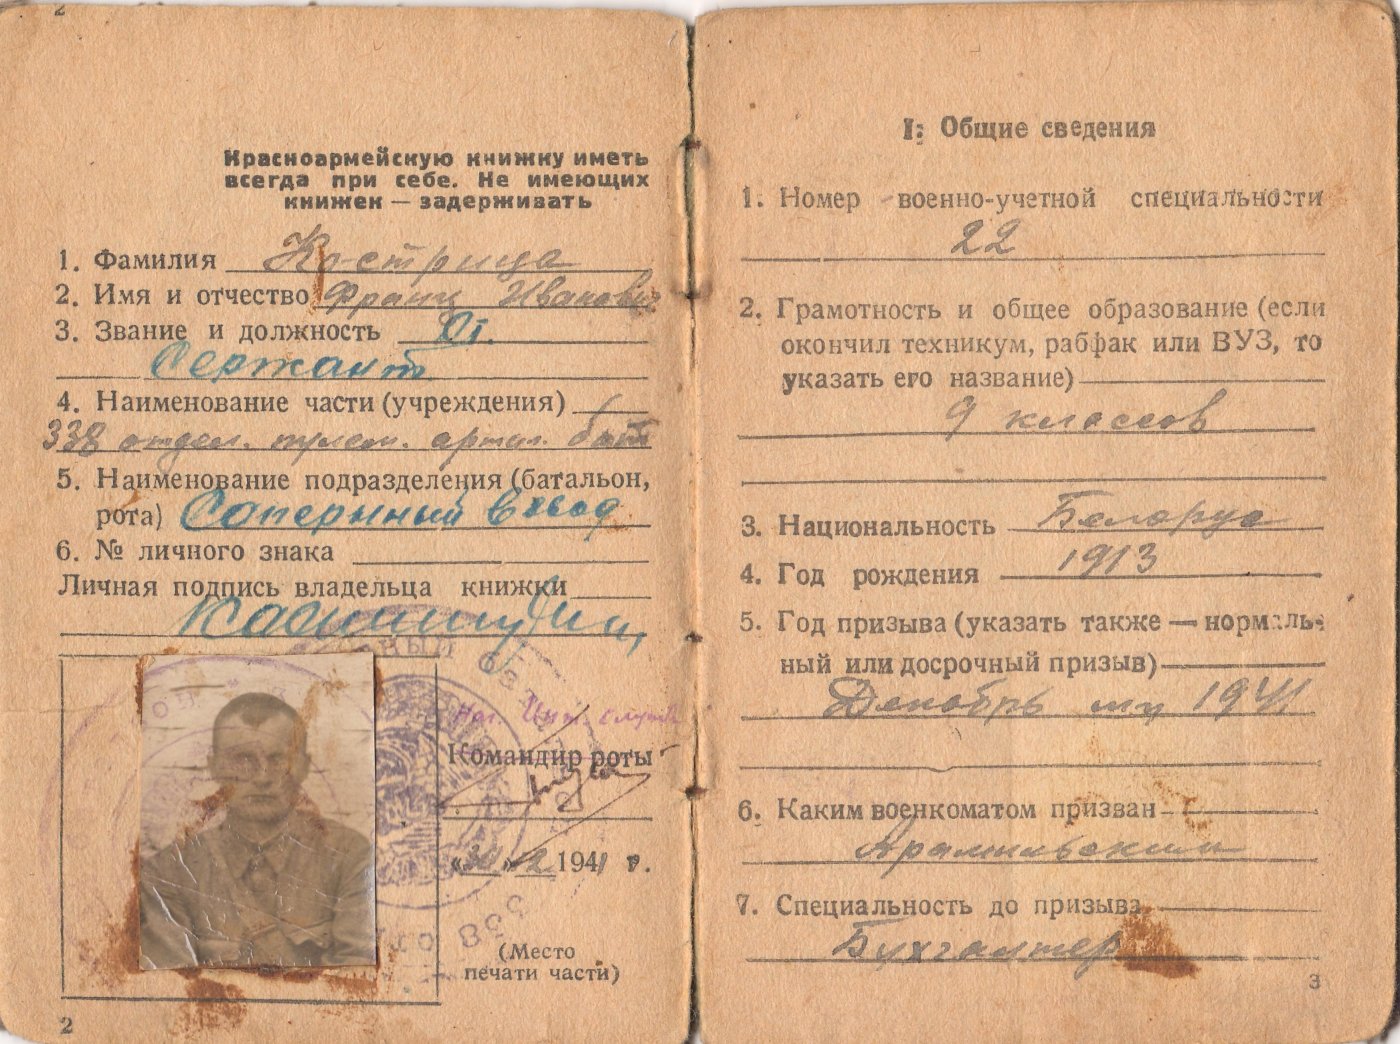 Красноармейскую книжку иметь
всегда при себе. Не имеющих
книжек — задерживать
1. Фамилия Кострица
2. Имя и отчество Франц Иванович
3. Звание и должность Ст.
Сержант
4. Наименование части (учреждения)
338 отдел. пулем. артил. бат
5. Наименование подразделения (батальон,
рота) Саперный взвод
6. № личного знака
Личная подпись владельца книжки
Нач.
Командир роты
«30» 12 1941 г.
(Место
печати части)
338
2
I: Общие сведения
1. Номер военно-учетной специальности
22
2. Грамотность и общее образование (если
окончил техникум, рабфак или ВУЗ, то
указать его название)
9 классов
3. Национальность Белорус
4. Год рождения 1913
5. Год призыва (указать также — нормаль-
ный или досрочный призыв)
Декабрь м-ц 1941
6. Каким военкоматом призван
Арамильским
7. Специальность до призыва
Бухгалтер
3